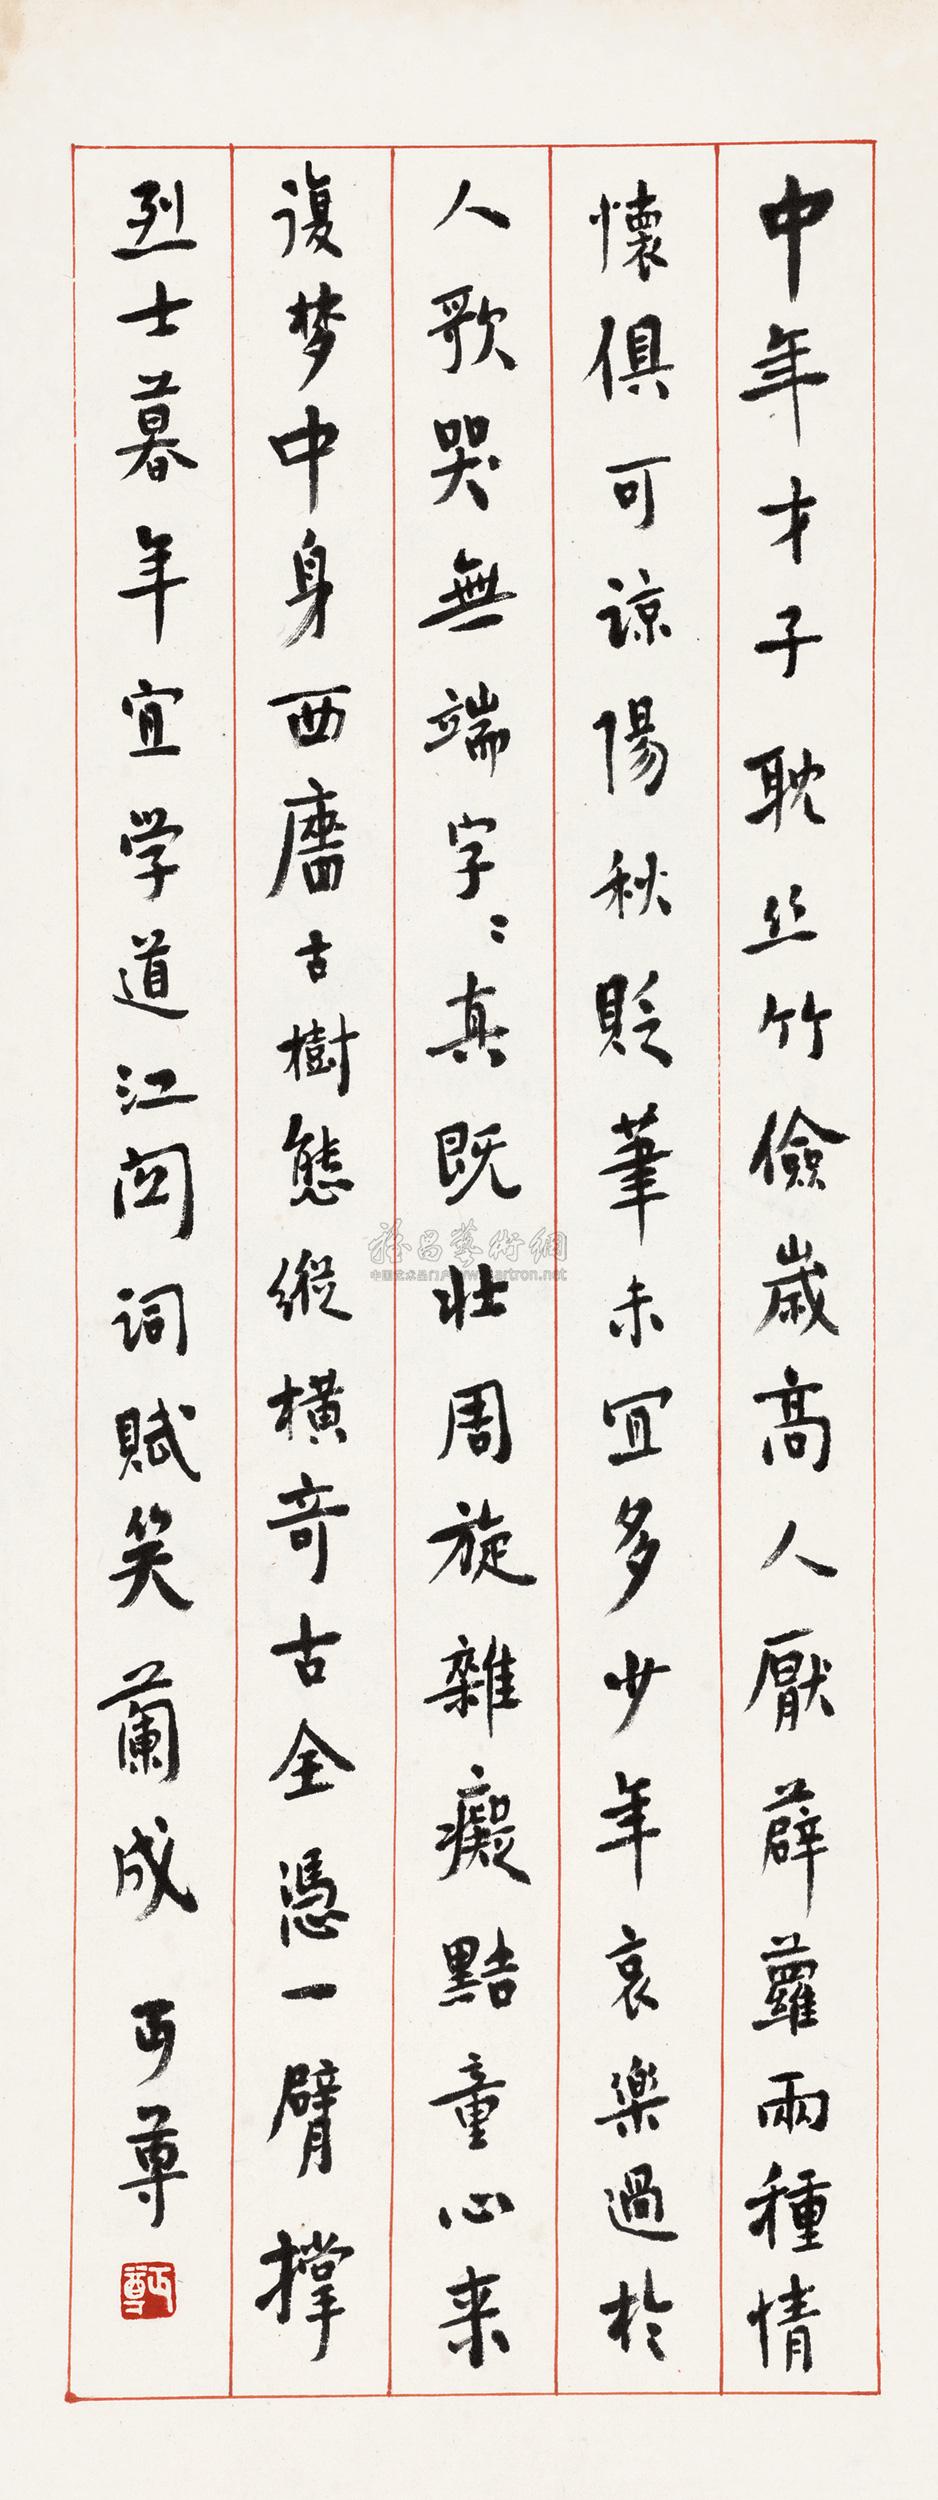 中年才子耽丝竹儉歲高人厭薜蘿兩種情
懷俱可諒陽秋貶筆未宜多少年哀樂過於
人歌哭無端字〻真既壯周旋雜癡黠童心来
復梦中身西廧古樹態縱横奇古全憑一臂撑
烈士暮年宜学道江関詞賦笑蘭成 丏尊
丏尊
雅昌藝術網
中国艺术品门户www.artron.net